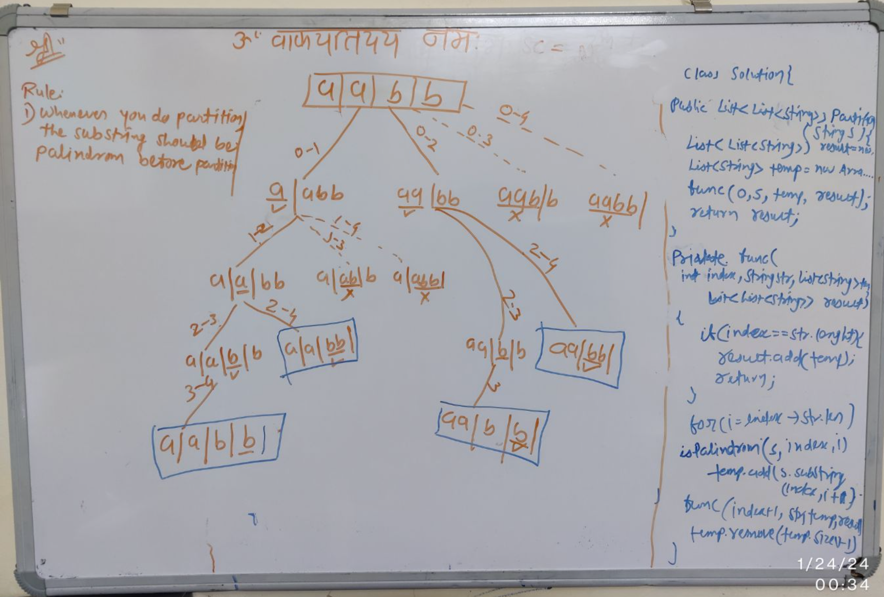 श्री"
ॐ वाक्यातयय नमः
SC =
a|a|b|b
Rule:
1) Whenever you do partition
the substring should be
palindrom before partition
0-1
0-2
0-3
0-4
a|abb
aa|bb
aab|b
x
aabb|
x
1-2
1-3
1-4
2-3
2-4
a|a|bb
a|ab|b
x
a|abb|
x
2-3
2-4
a|a|b|b
a|a|bb|
aa|b|b
aa|bb|
3-4
3
a|a|b|b|
aa|b|b|
Class Solution{
Public List<List<String>> Partition
(String s){
List<List<String>> result=new
List<String> temp = new Arra....
func(0,S, temp, result);
return result;
}
Private func(
int index, String str, List<String> te
List<List<String>> result)
{
if(index==str.lenght){
result.add(temp);
return;
}
for(i=index→str.len)
isPalindrom(s,index,i)
temp.add(s.substring
(index,i+1)
func(index+1, str,temp,resul
temp.remove(temp.size()-1)
}
1/24/24
00:34